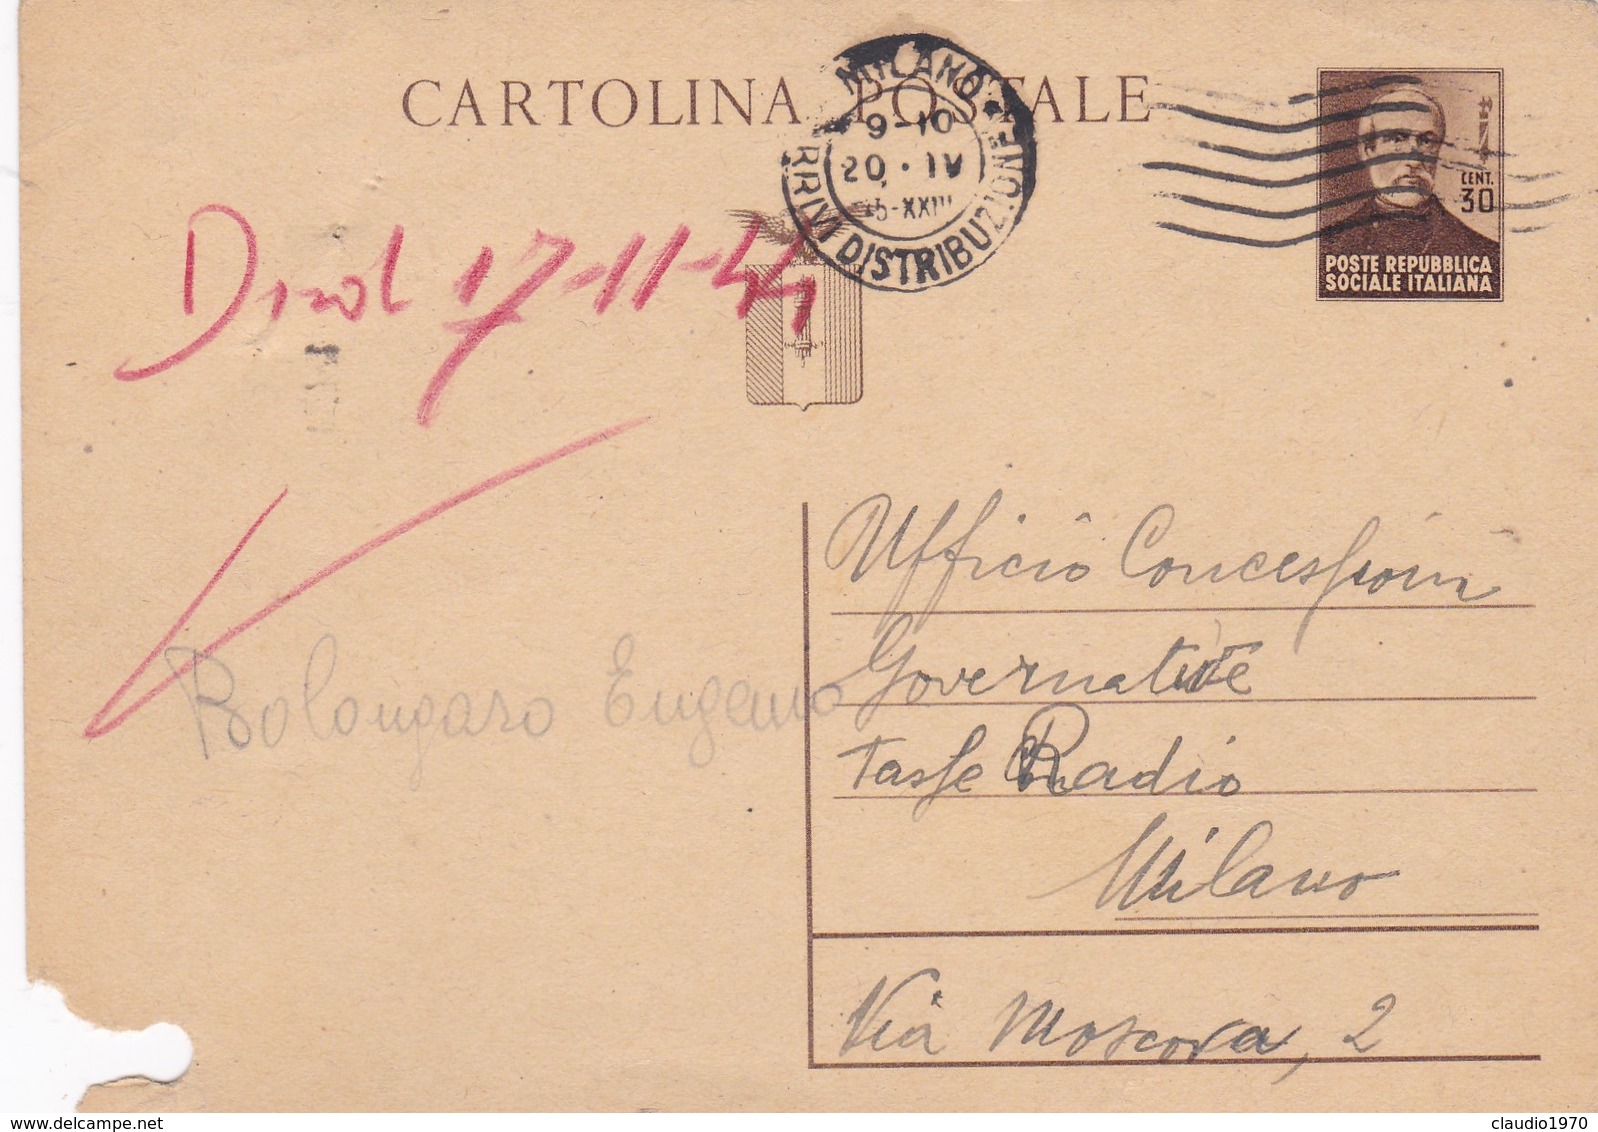 CARTOLINA POSTALE
MILANO
9-10
20 · IV
45-XXIII
ARRIVI DISTRIBUZIONE
CENT.
30
POSTE REPUBBLICA
SOCIALE ITALIANA
17-11-44
Ufficio Concessioni
Governative
Bolongaro Eugenio
Tasse Radio
Milano
Via Moscova, 2
claudio1970